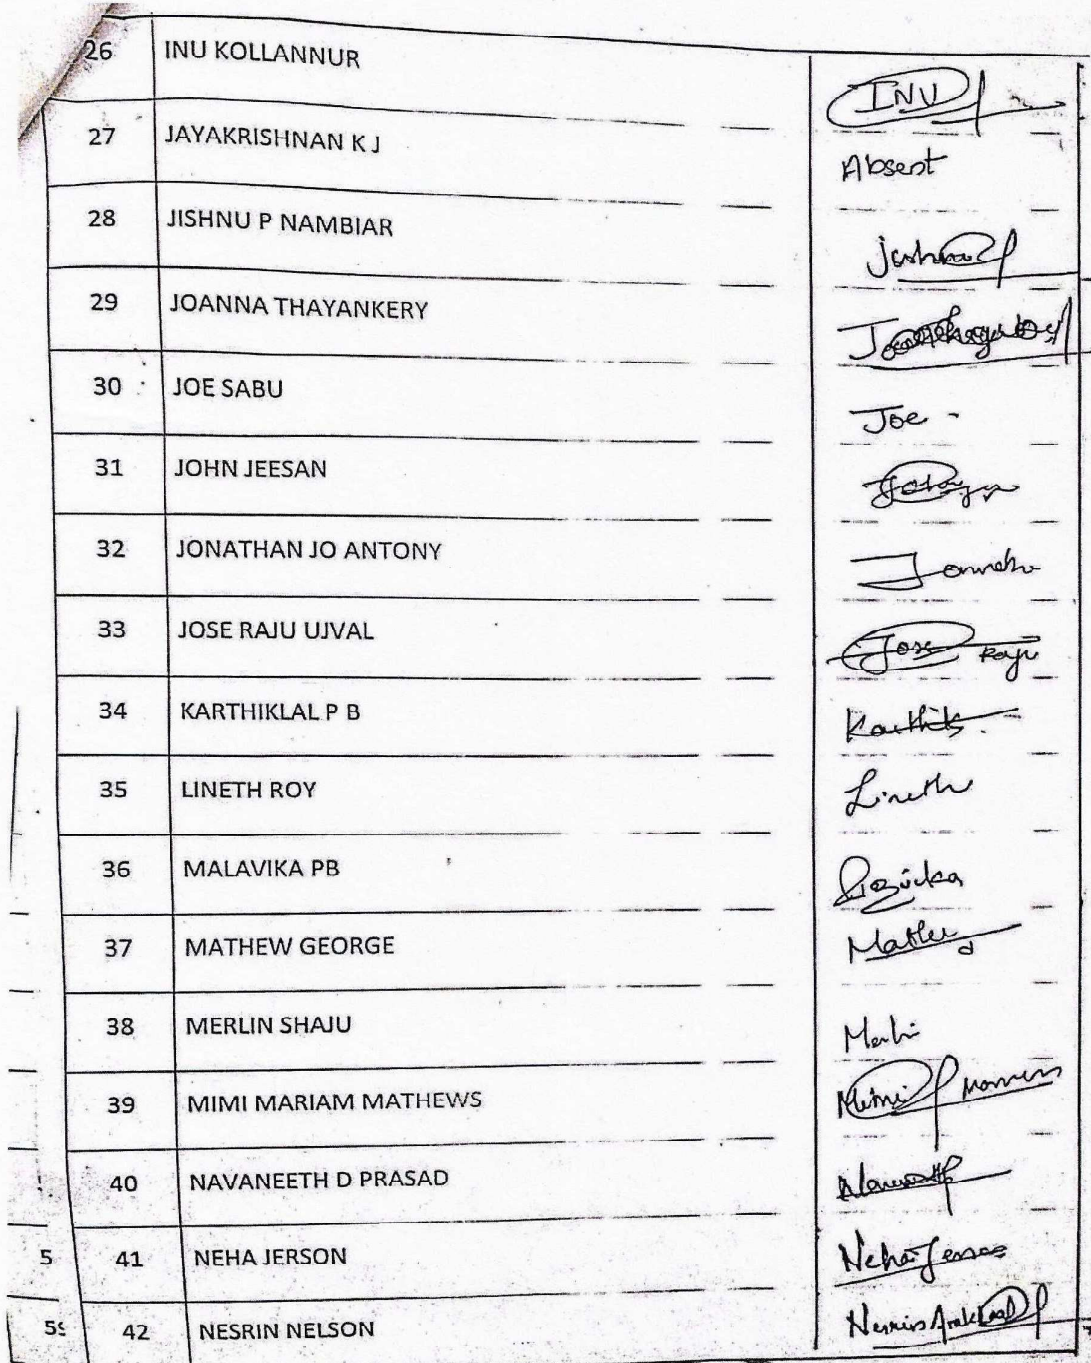 26 INU KOLLANNUR INU
27 JAYAKRISHNAN K J Absent
28 JISHNU P NAMBIAR Jishnu
29 JOANNA THAYANKERY
30 JOE SABU Joe
31 JOHN JEESAN
32 JONATHAN JO ANTONY
33 JOSE RAJU UJVAL Jose Raju
34 KARTHIKLAL P B Karthik
35 LINETH ROY Lineth
36 MALAVIKA PB
37 MATHEW GEORGE
38 MERLIN SHAJU
39 MIMI MARIAM MATHEWS Mimi
40 NAVANEETH D PRASAD
5 41 NEHA JERSON Neha Jerson
42 NESRIN NELSON Nesrin